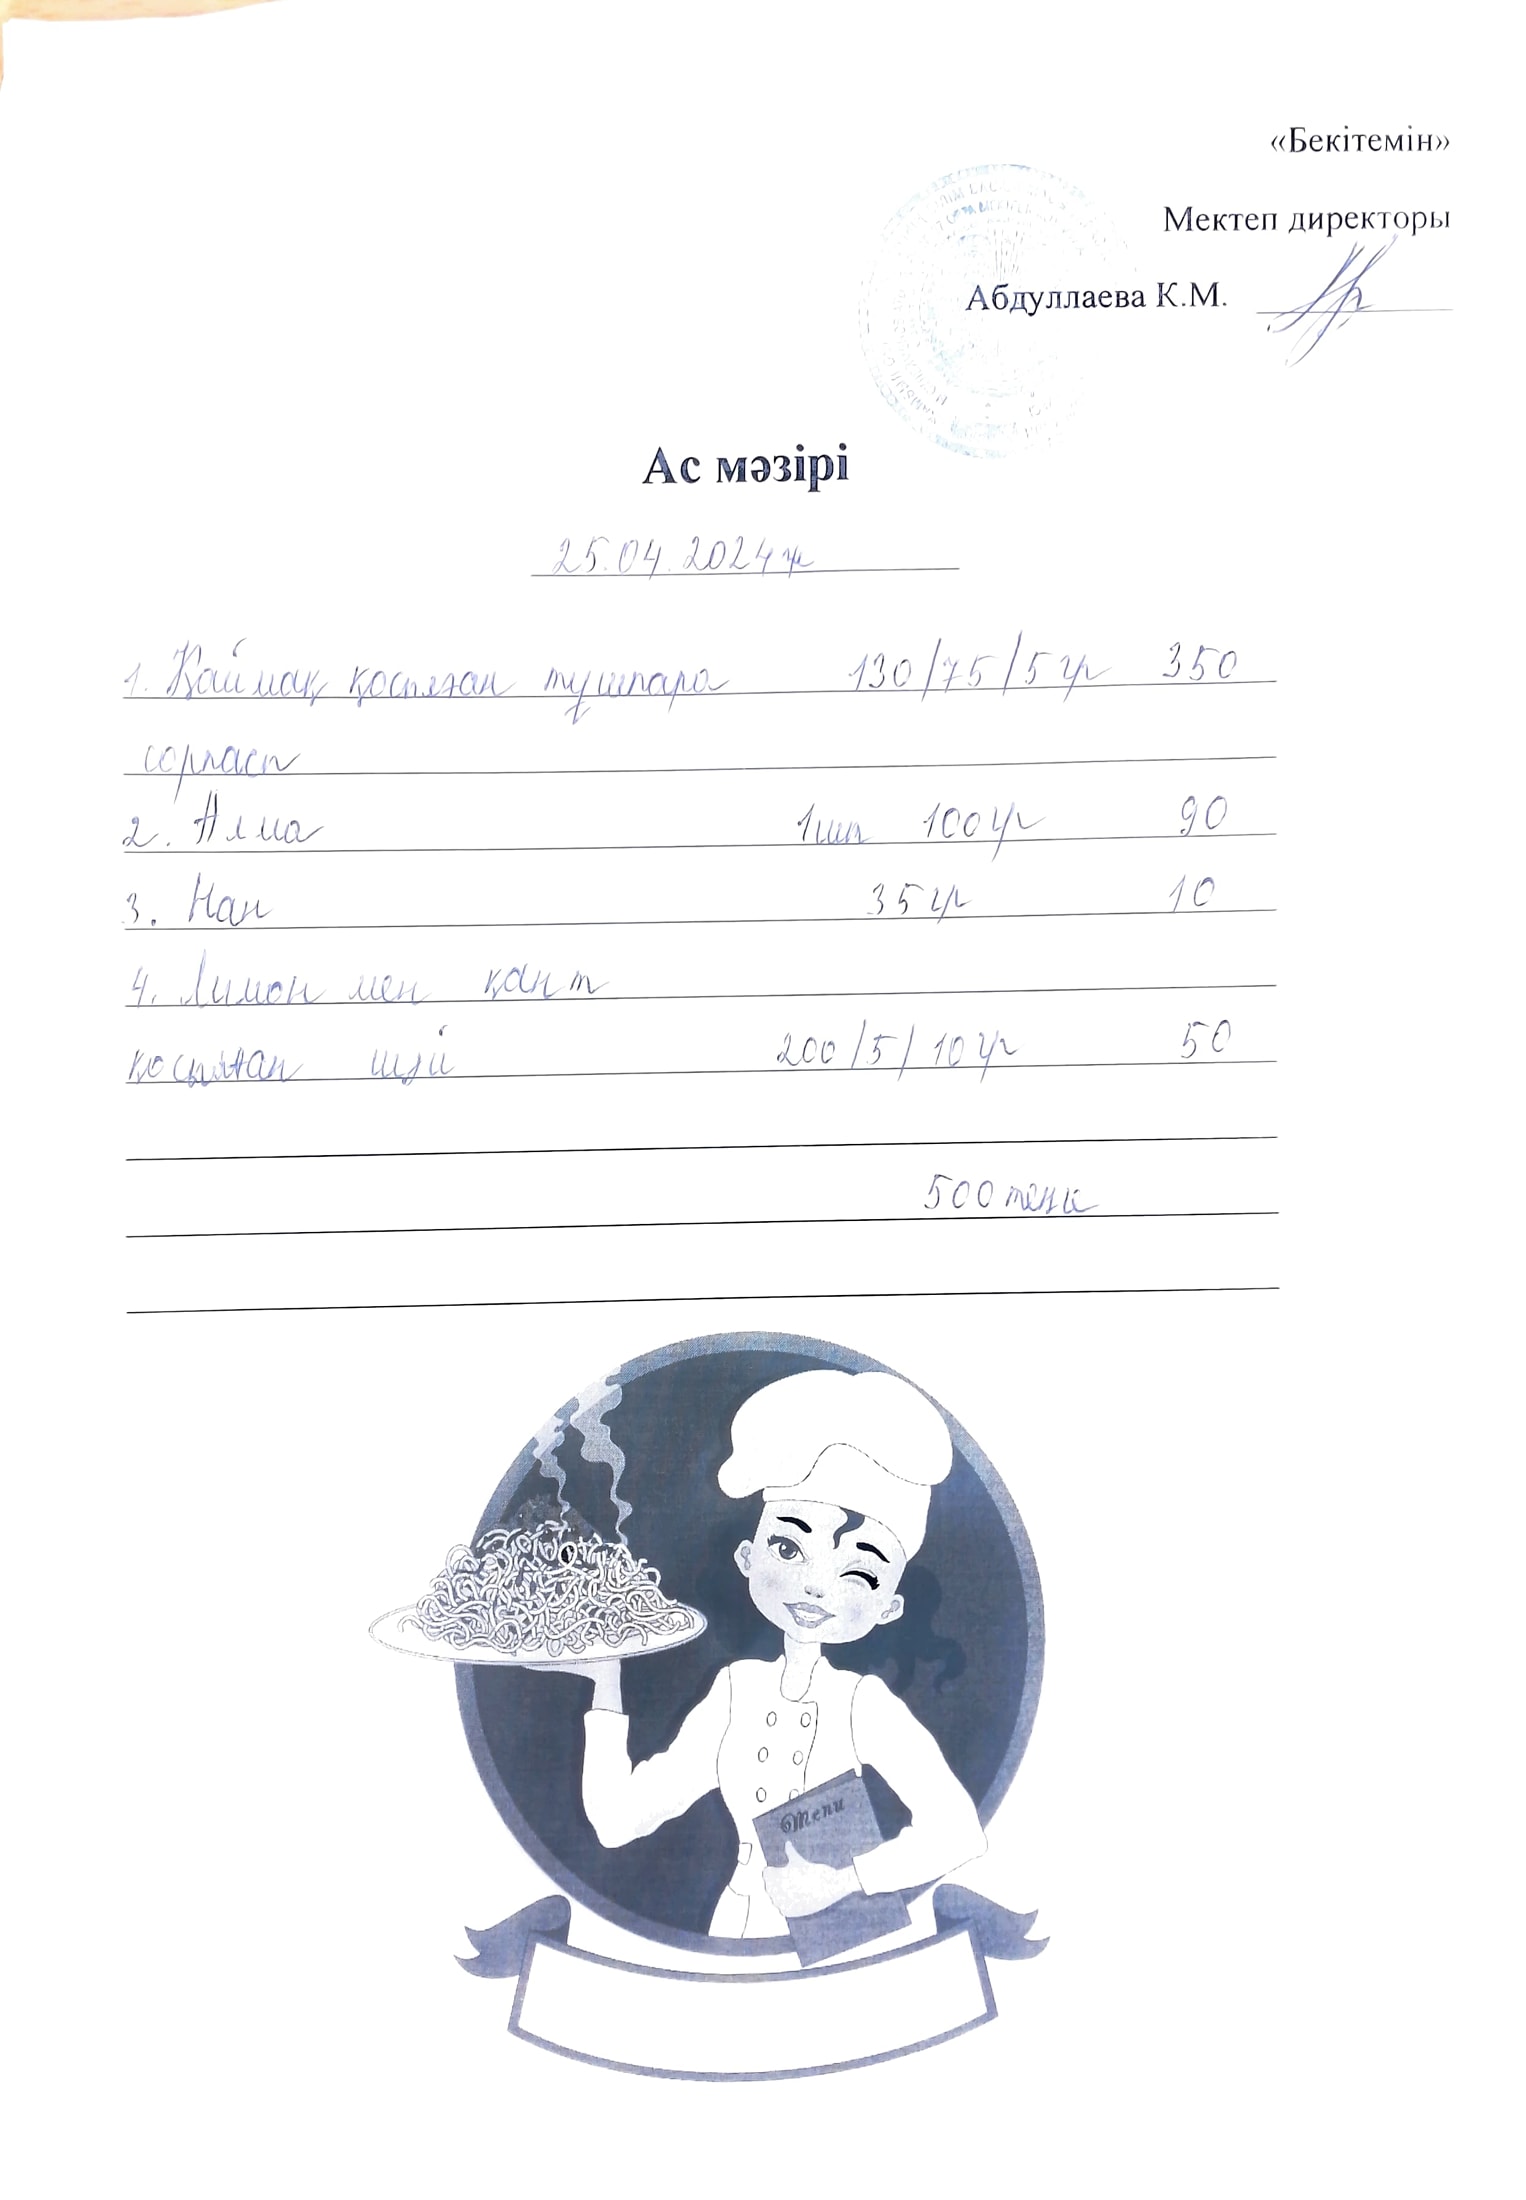 «Бекітемін»
Мектеп директоры
Абдуллаева К.М.
Ас мәзірі
25.04.2024ж
1. Қаймақ қосылған тұшпара 130/75/5гр 350
сорпасы
2. Алма 1шт 100гр 90
3. Нан 35гр 10
4. Лимон мен қант
қосылған шәй 200/5/10гр 50
500теңге
Menu